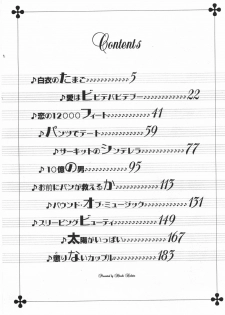 Contents
♪白衣のたまご♪♪♪♪♪♪♪♪♪♪5
♪愛はビビデバビデブー♪♪♪♪♪♪22
♪恋の12000フィート♪♪♪♪♪♪41
♪パンツでデート♪♪♪♪♪♪59
♪サーキットのシンデレラ♪♪♪♪♪♪77
♪10億の男♪♪♪♪♪♪95
♪お前にパンが救えるか♪♪♪♪♪♪113
♪パウンド・オブ・ミュージック♪♪♪♪♪♪131
♪スリーピングビューティ♪♪♪♪♪♪149
♪太陽がいっぱい♪♪♪♪♪♪167
♪懲りないカップル♪♪♪♪♪♪183